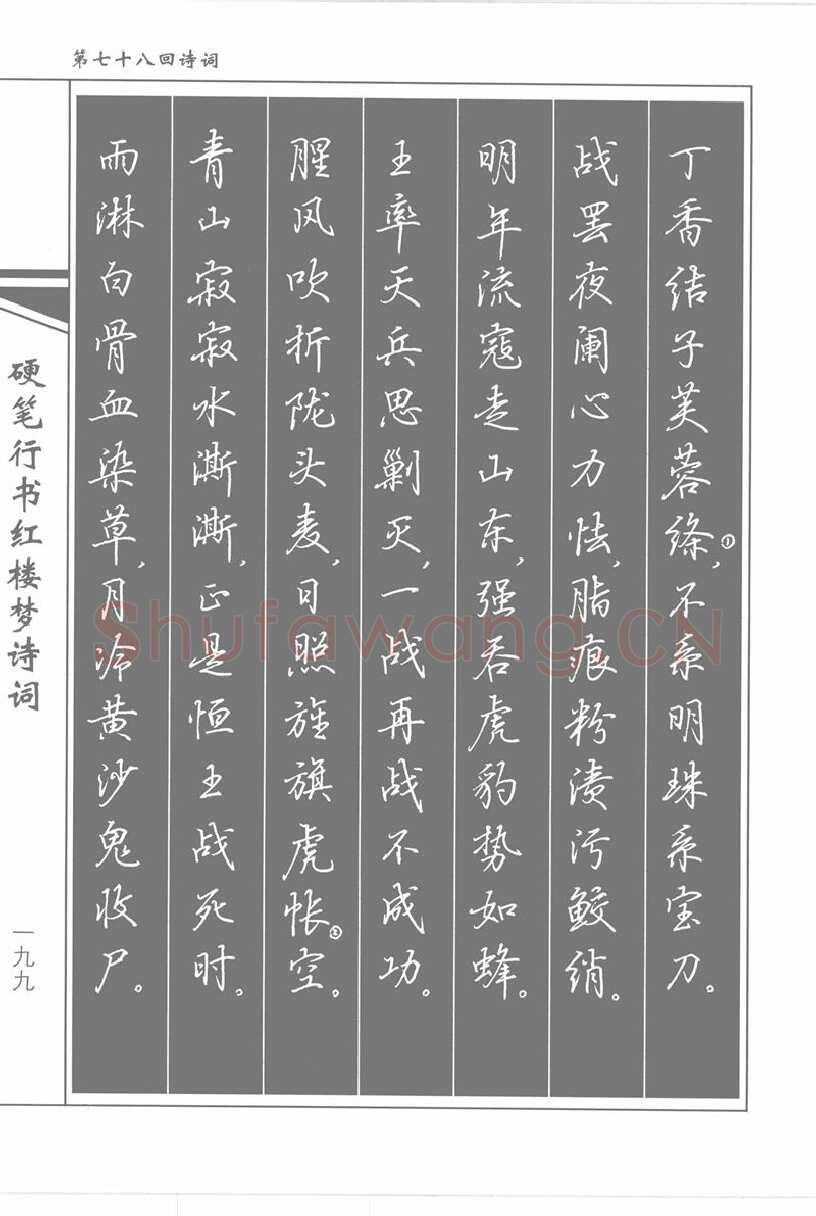 第七十八回诗词
丁香结子芙蓉绦①,不系明珠系宝刀。
战罢夜阑心力怯,脂痕粉渍污鲛绡。
明年流寇走山东,强吞虎豹势如蜂。
王率天兵思剿灭,一战再战不成功。
腥风吹折陇头麦,日照旌旗虎帐②空。
青山寂寂水澌澌,正是恒王战死时。
雨淋白骨血染草,月冷黄沙鬼收尸。
硬笔行书红楼梦诗词
一九九
Shufawang.CN